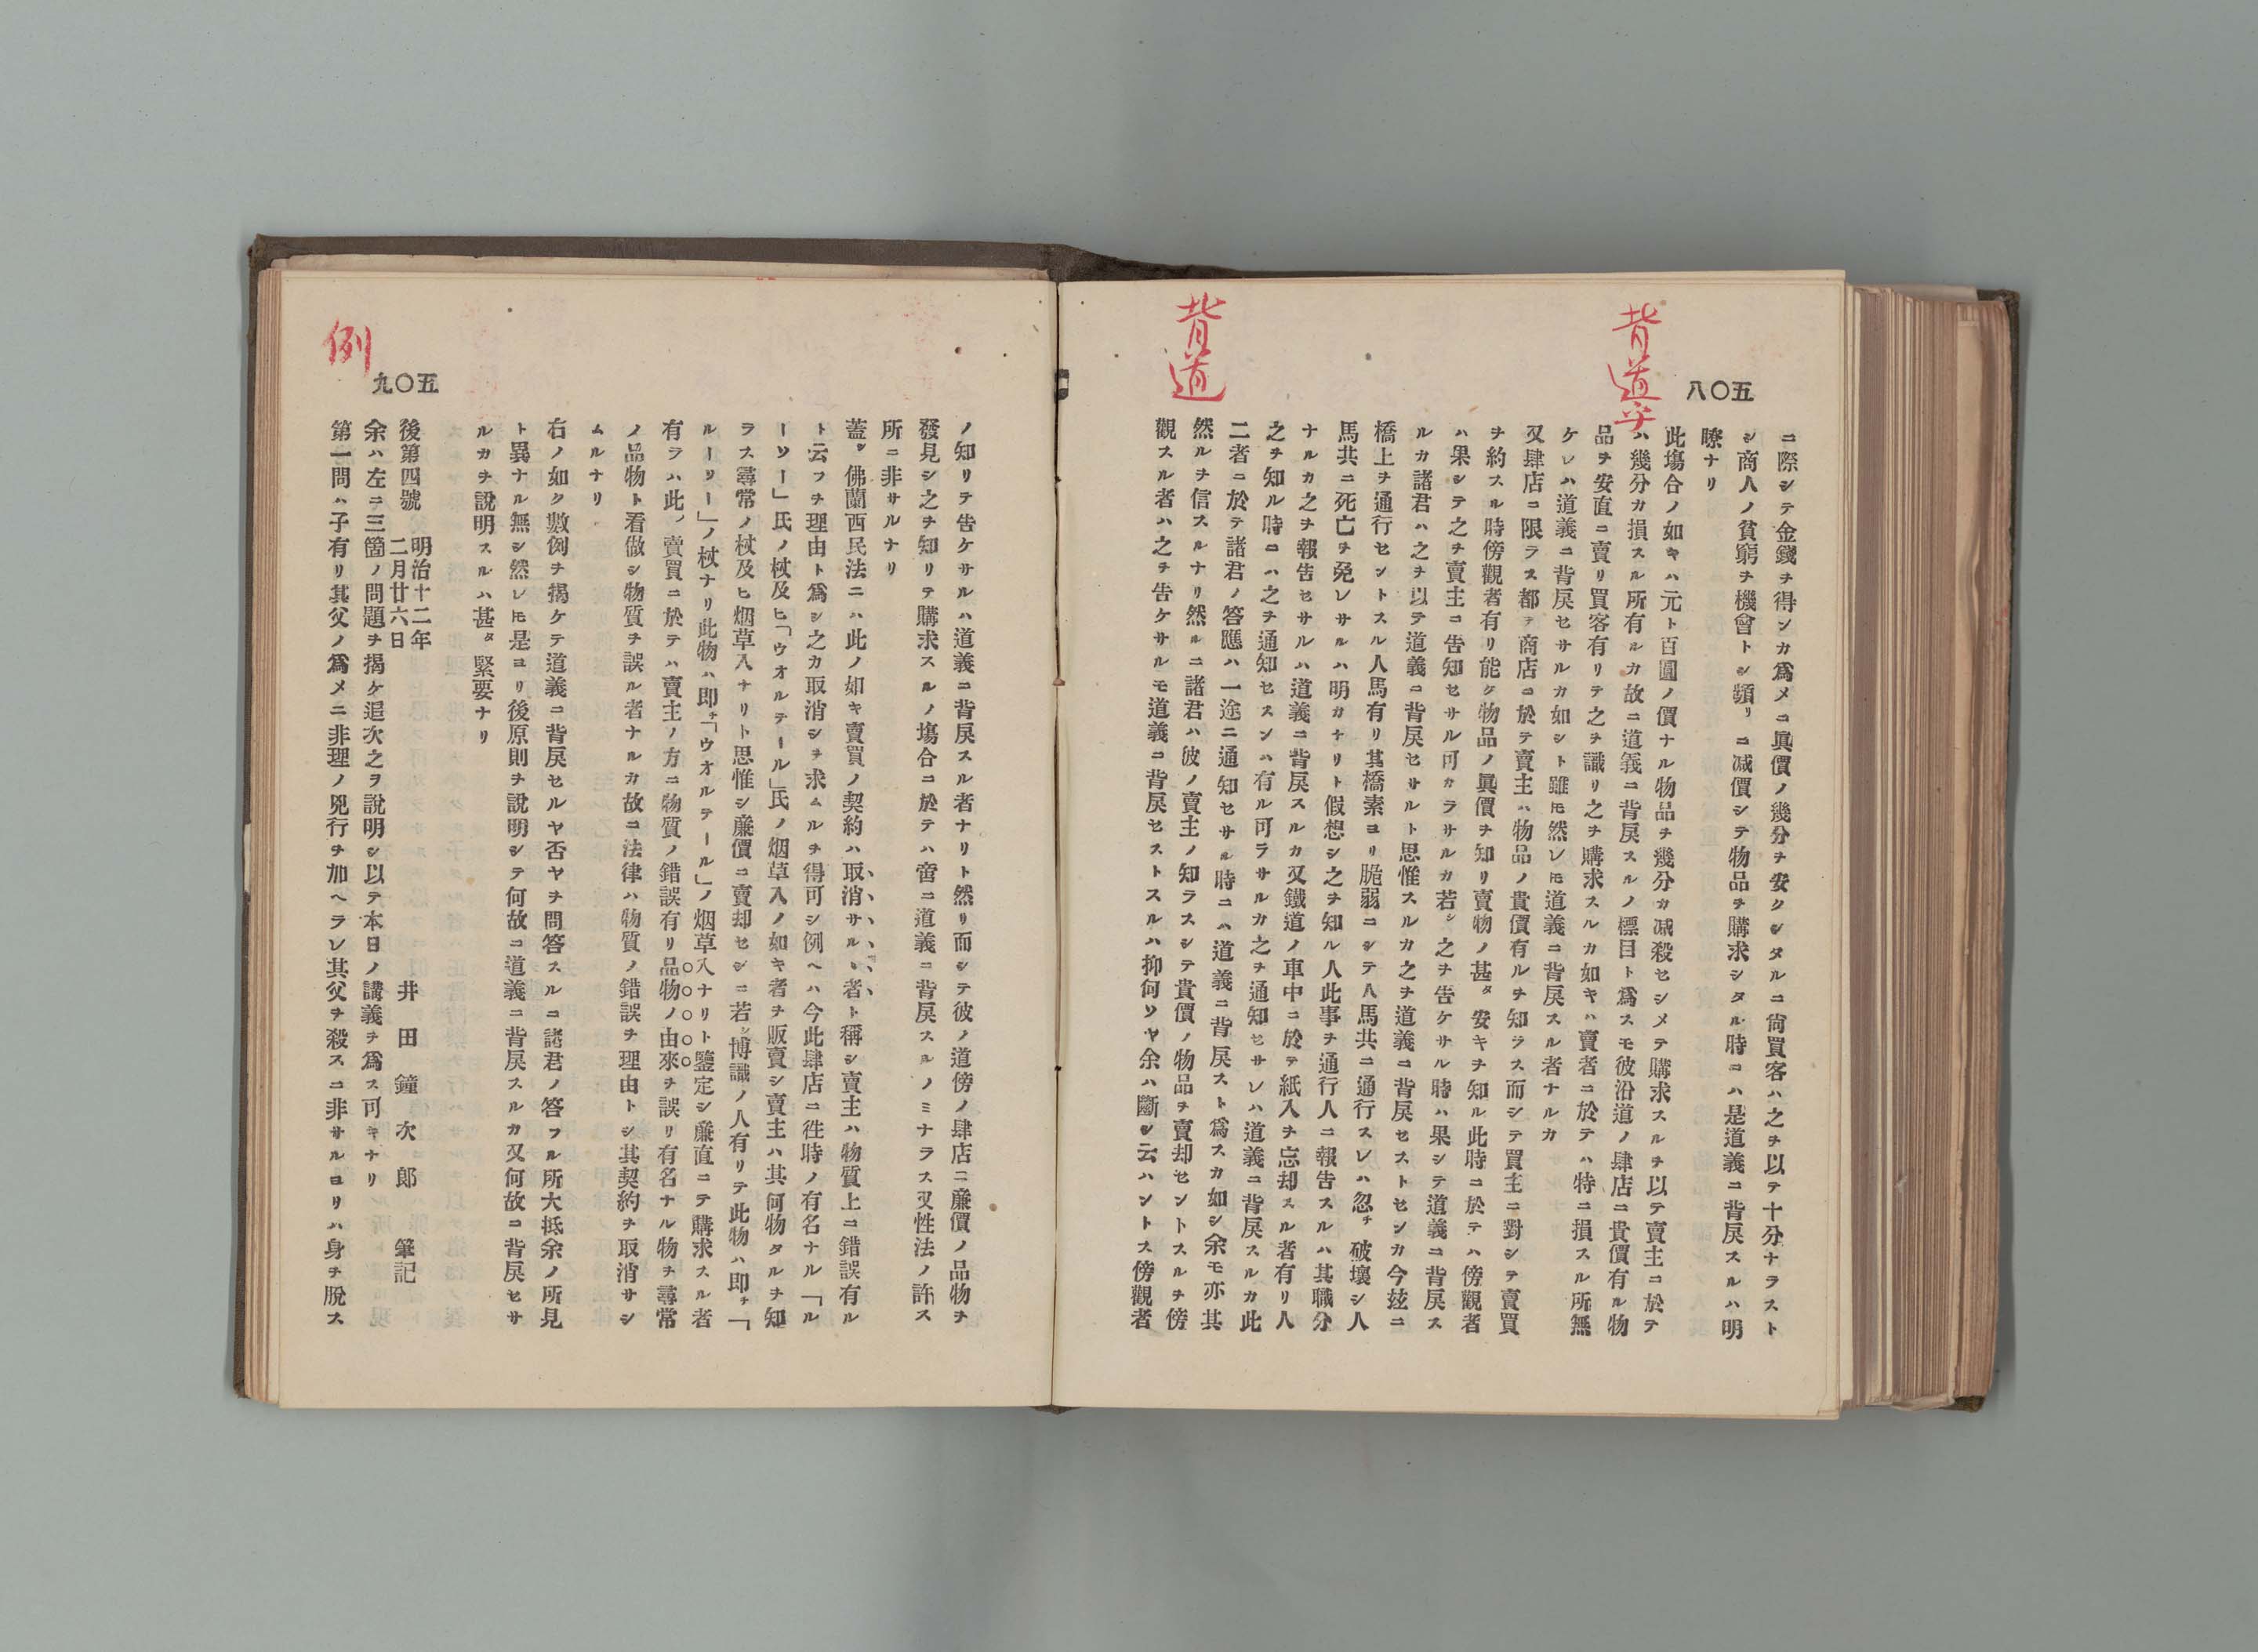 背道
字
八〇五
ニ際シテ金錢ヲ得ンカ爲メニ眞價ノ幾分ヲ安クシタルニ尙買客ハ之ヲ以テ十分ナラスト
シ商人ノ貧窮ヲ機會トシ頻リニ减價シテ物品ヲ購求シタル時ニハ是道義ニ背戻スルハ明
瞭ナリ
此塲合ノ如キハ元ト百圓ノ價ナル物品ヲ幾分カ减殺セシメテ購求スルヲ以テ賣主ニ於テ
ハ幾分カ損スル所有ルカ故ニ道義ニ背戻スルノ標目ト爲スモ彼沿道ノ肆店ニ貴價有ル物
品ヲ安直ニ賣リ買客有リテ之ヲ識リ之ヲ購求スルカ如キハ賣者ニ於テハ特ニ損スル所無
ケレハ道義ニ背戻セサルカ如シト雖モ然レㇳモ道義ニ背戻スル者ナルカ
又肆店ニ限ラス都テ商店ニ於テ賣主ハ物品ノ貴價有ルヲ知ラス而シテ買主ニ對シテ賣買
ヲ約スル時傍觀者有リ能ク物品ノ眞價ヲ知リ賣物ノ甚タ安キヲ知ル此時ニ於テハ傍觀者
ハ果シテ之ヲ賣主ニ告知セサル可カラサルカ若シ之ヲ告ケサル時ハ果シテ道義ニ背戻ス
ルカ諸君ハ之ヲ以テ道義ニ背戻セサルト思惟スルカ之ヲ道義ニ背戻セストセンカ今玆ニ
橋上ヲ通行セントスル人馬有リ其橋素ヨリ脆弱ニシテ人馬共ニ通行スレハ忽チ破壞シ人
馬共ニ死亡ヲ免レサルハ明カナリト假想シ之ヲ知ル人此事ヲ通行人ニ報告スルハ其職分
ナルカ之ヲ報告セサルハ道義ニ背戻スルカ又鐵道ノ車中ニ於テ紙入ヲ忘却スル者有リ人
之ヲ知ル時ニハ之ヲ通知セスンハ有ル可ラサルカ之ヲ通知セサレハ道義ニ背戻スルカ此
二者ニ於テ諸君ノ答應ハ一途ニ通知セサル時ニハ道義ニ背戻スト爲スカ如シ余モ亦其
然ルヲ信スルナリ然ルニ諸君ハ彼ノ賣主ノ知ラスシテ貴價ノ物品ヲ賣却セントスルヲ傍
觀スル者ハ之ヲ告ケサルモ道義ニ背戻セストスルハ抑何ソヤ余ハ斷シ云ハントス傍觀者
背道
九〇五
ノ知リテ告ケサルハ道義ニ背戻スル者ナリト然リ而シテ彼ノ道傍ノ肆店ニ廉價ノ品物ヲ
發見シ之ヲ知リテ購求スルノ塲合ニ於テハ啻ニ道義ニ背戻スルノミナラス又性法ノ許ス
所ニ非サルナリ
蓋シ佛蘭西民法ニハ此ノ如キ賣買ノ契約ハ取消サルヽ者ト稱シ賣主ハ物質上ニ錯誤有ル
ト云フヲ理由ト爲シ之カ取消シヲ求ムルヲ得可シ例ヘハ今此肆店ニ徃時ノ有名ナル「ル
ーソー」氏ノ杖及ヒ「ウオルテール」氏ノ烟草入ノ如キ者ヲ販賣シ賣主ハ其何物タルヲ知
ラス尋常ノ杖及ヒ烟草入ナリト思惟シ廉價ニ賣却セシニ若シ博識ノ人有リテ此物ハ即チ「
ルーソー」ノ杖ナリ此物ハ即チ「ウオルテール」ノ烟草入ナリト鑒定シ廉直ニテ購求スル者
有ラハ此ノ賣買ニ於テハ賣主ノ方ニ物質ノ錯誤有リ品物ノ由來ヲ誤リ有名ナル物ヲ尋常
ノ品物ト看做シ物質ヲ誤ル者ナルカ故ニ法律ハ物質ノ錯誤ヲ理由トシ其契約ヲ取消サシ
ムルナリ
右ノ如ク數例ヲ揭ケテ道義ニ背戻セルヤ否ヤヲ問答スルニ諸君ノ答フル所大抵余ノ所見
ト異ナル無シ然レㇳモ是ヨリ後原則ヲ說明シテ何故ニ道義ニ背戻スルカ又何故ニ背戻セサ
ルカヲ說明スルハ甚タ緊要ナリ
後第四號 明治十二年二月廿六日 井田鐘次郎 筆記
余ハ左ニ三箇ノ問題ヲ揭ケ逗次之ヲ說明シ以テ本日ノ講義ヲ爲ス可キナリ
例
第一問ハ子有リ其父ノ爲メニ非理ノ兇行ヲ加ヘラレ其父ヲ殺スニ非サルヨリハ身ヲ脫ス